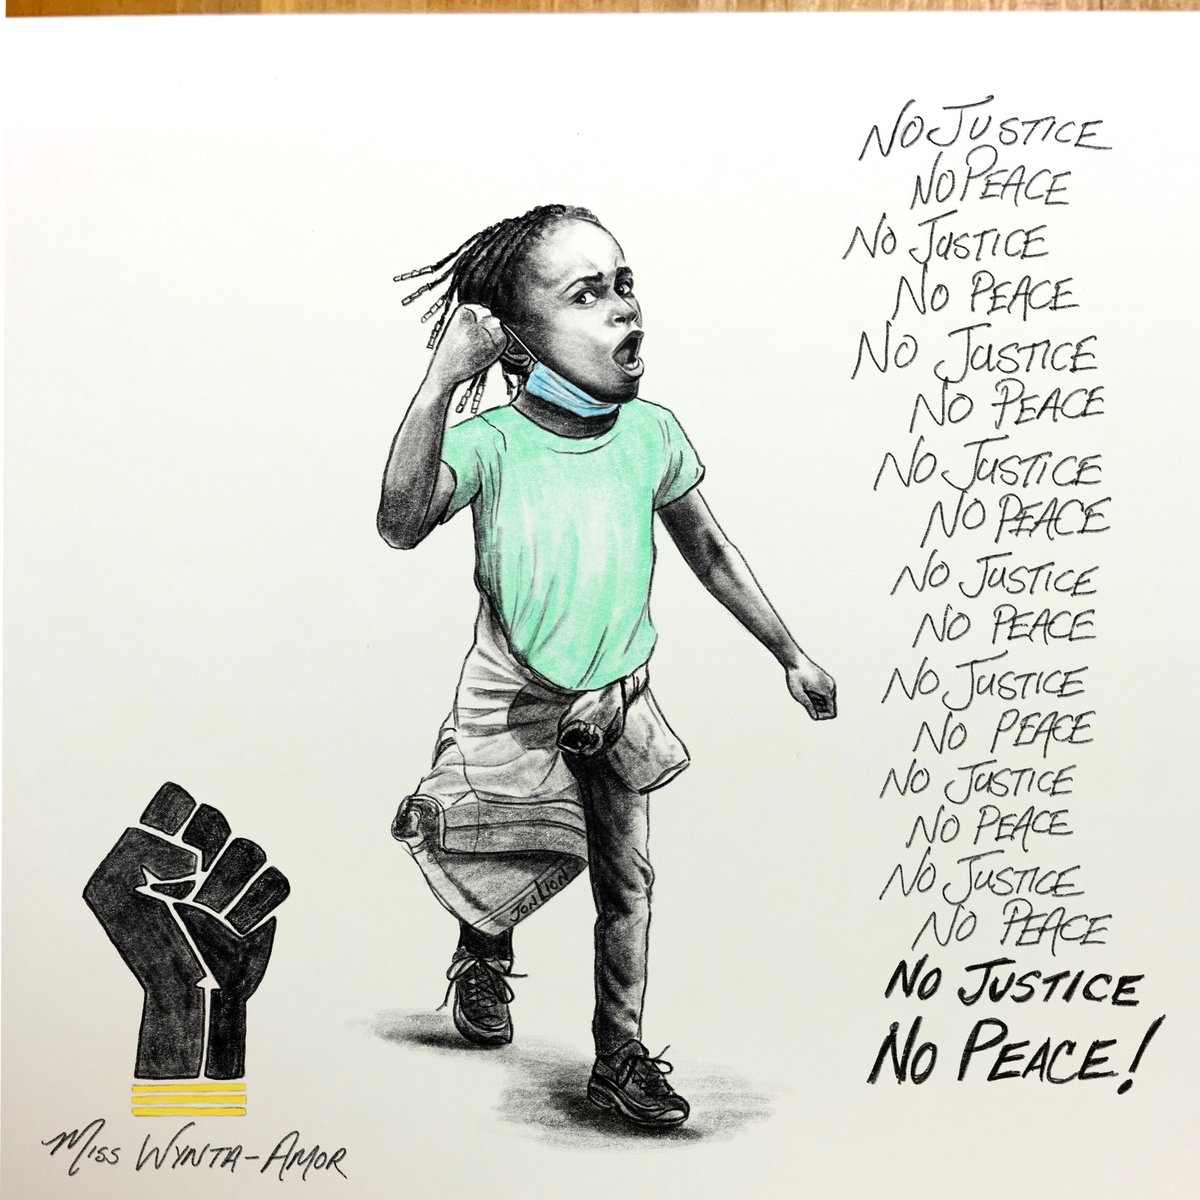 NO JUSTICE
NO PEACE
NO JUSTICE
NO PEACE
NO JUSTICE
NO PEACE
NO JUSTICE
NO PEACE
NO JUSTICE
NO PEACE
NO JUSTICE
NO PEACE
NO JUSTICE
NO PEACE
NO JUSTICE
NO PEACE
NO JUSTICE
NO PEACE!
JON LION
MISS WYNTA-AMOR